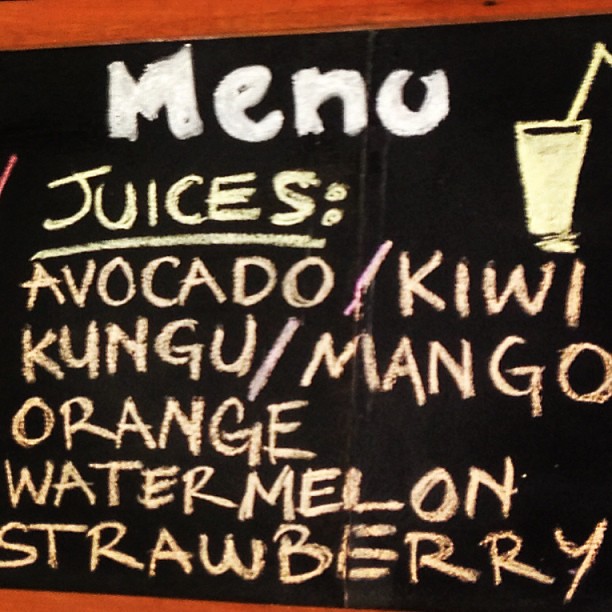 Menu
JUICES:
AVOCADO/KIWI
KUNGU/MANGO
ORANGE
WATERMELON
STRAWBERRY